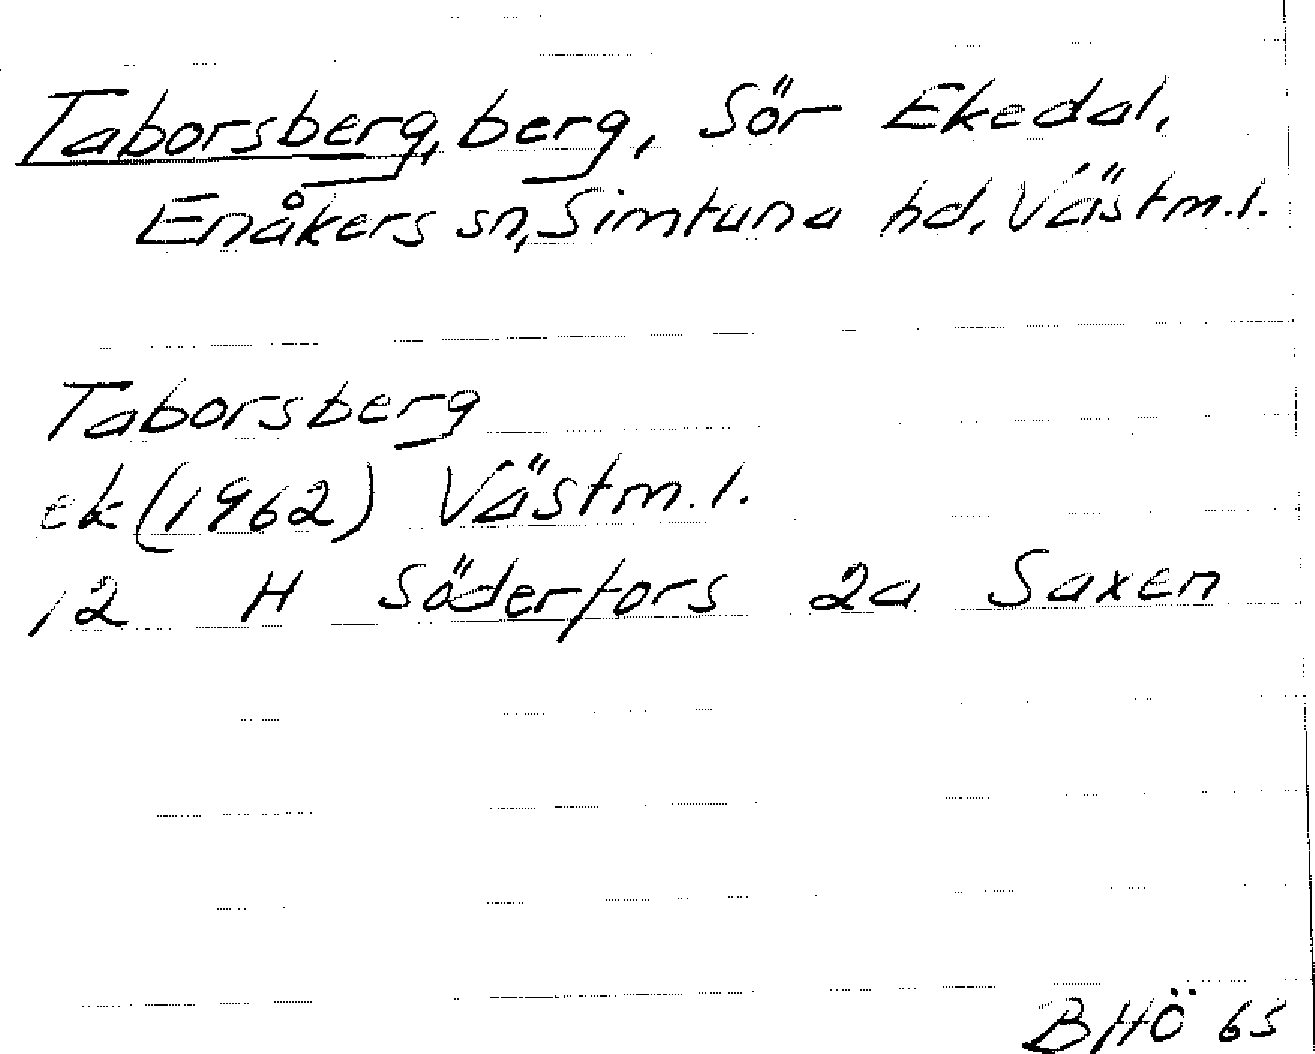 Taborsberg, berg, Sör Ekedal,
Enåkers sn, Simtuna hd, Västm.l.
Taborsberg
ek (1962) Västm.l.
12 H Söderfors 2a Saxen
BHÖ 65